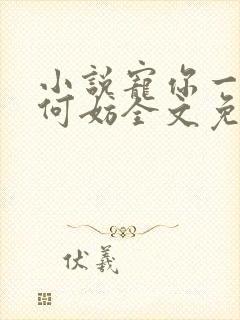 小說寵你一
何妨全文免
伏羲